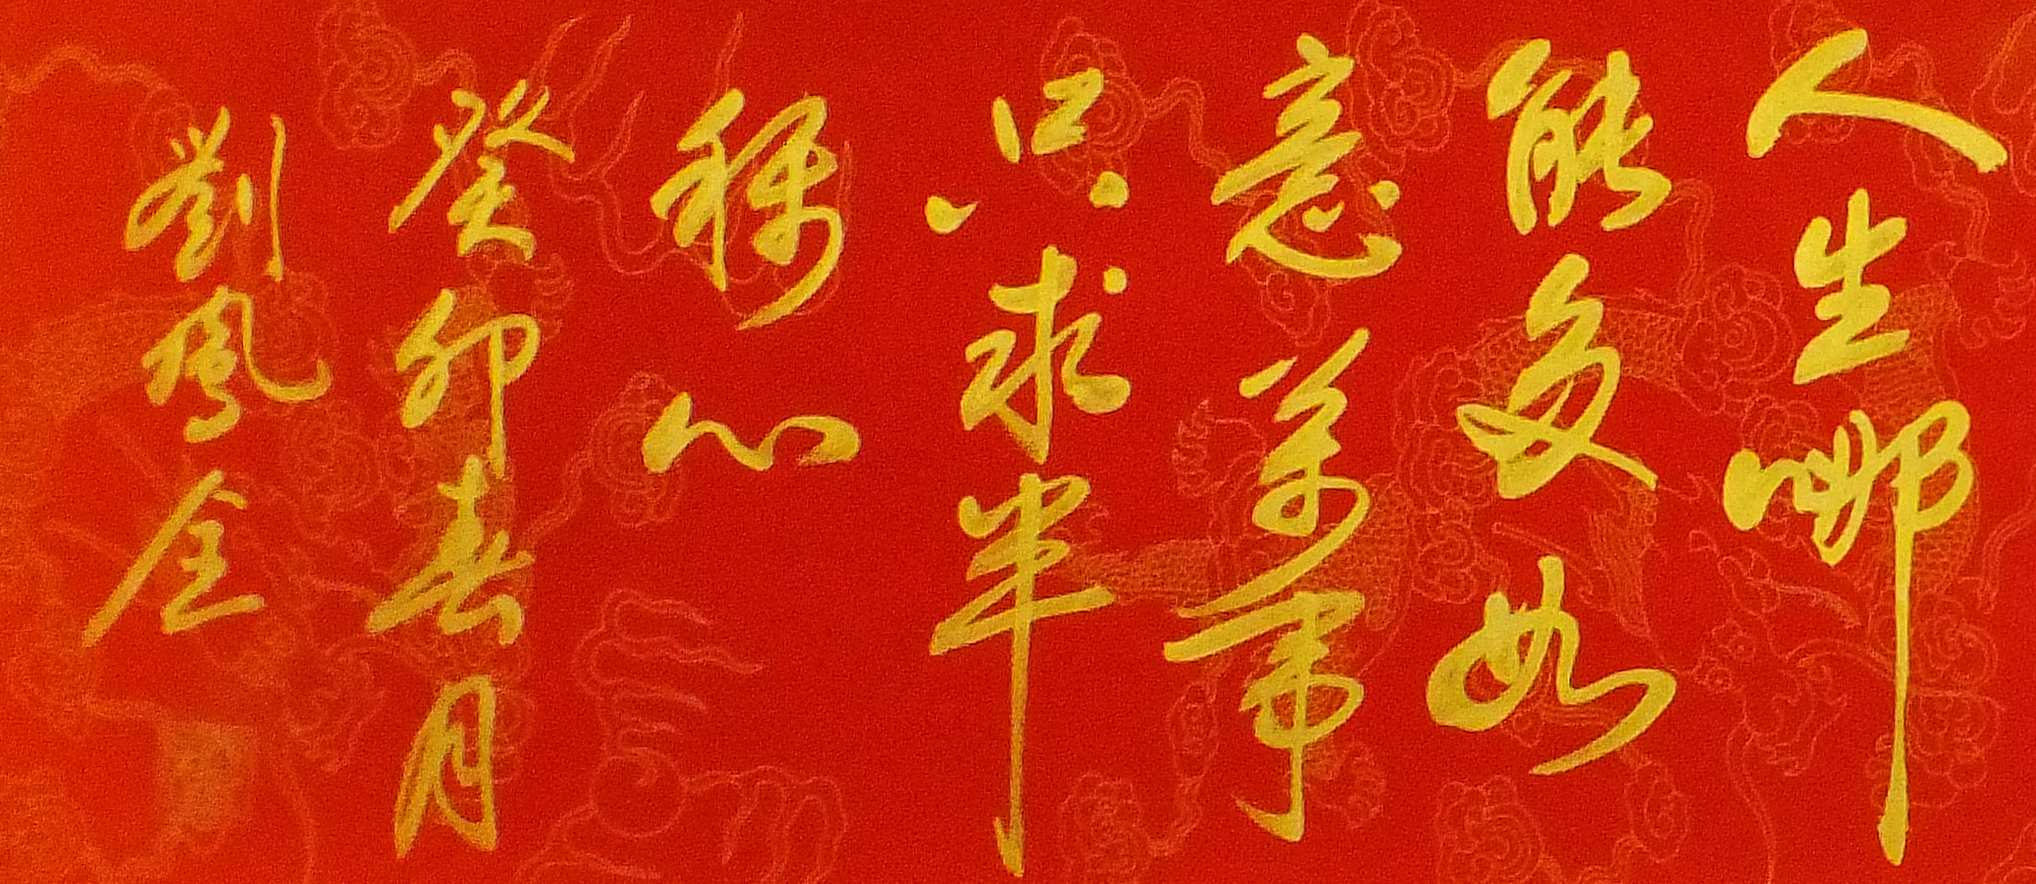 人生哪
能多如
意萬事
只求半
稱心
癸卯春月
劉鳳全